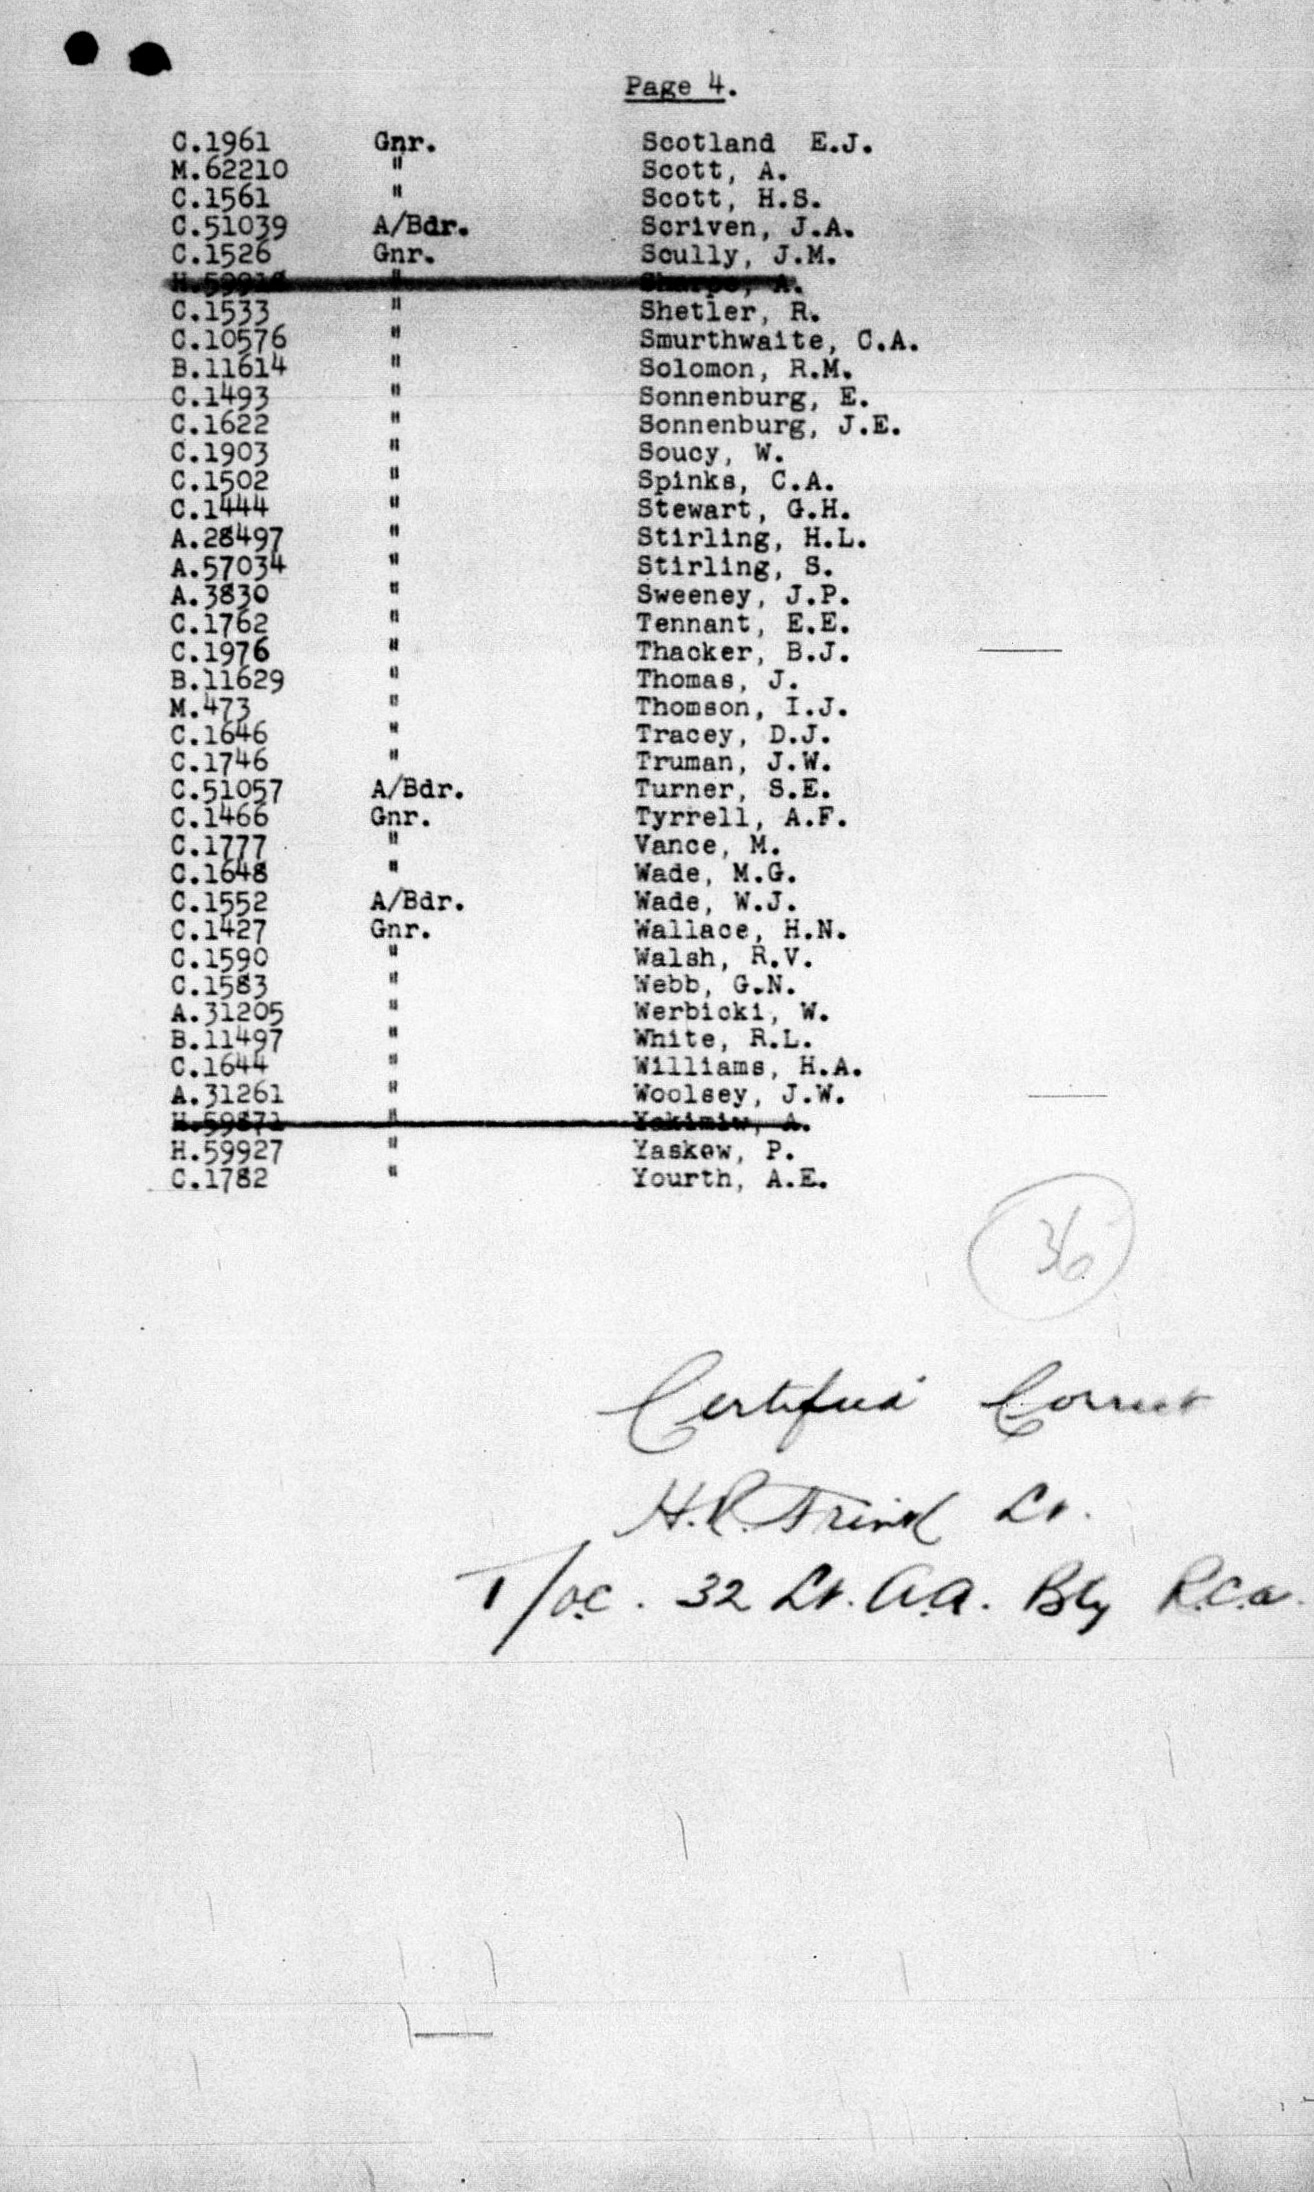 Page 4.
C.1961 Gnr. Scotland E.J.
M.62210 " Scott, A.
C.1561 " Scott, H.S.
C.51039 A/Bdr. Scriven, J.A.
C.1526 Gnr. Scully, J.M.
" Sharpe, A.
C.1533 " Shetler, R.
C.10576 " Smurthwaite, C.A.
B.11614 " Solomon, R.M.
C.1493 " Sonnenburg, E.
C.1622 " Sonnenburg, J.E.
C.1903 " Soucy, W.
C.1502 " Spinks, C.A.
C.1444 " Stewart, G.H.
A.28497 " Stirling, H.L.
A.57034 " Stirling, S.
A.3830 " Sweeney, J.P.
C.1762 " Tennant, E.E.
C.1976 " Thacker, B.J.
B.11629 " Thomas, J.
M.473 " Thomson, I.J.
C.1646 " Tracey, D.J.
C.1746 " Truman, J.W.
C.51057 A/Bdr. Turner, S.E.
C.1466 Gnr. Tyrrell, A.F.
C.1777 " Vance, M.
C.1648 " Wade, M.G.
C.1552 A/Bdr. Wade, W.J.
C.1427 Gnr. Wallace, H.N.
C.1590 " Walsh, R.V.
C.1583 " Webb, G.N.
A.31205 " Werbicki, W.
B.11497 " White, R.L.
C.1644 " Williams, H.A.
A.31261 " Woolsey, J.W.
H.59871 " Yakimiw, A.
H.59927 " Yaskow, P.
C.1782 " Yourth, A.E.
36
Certified Correct
H.R. Frind Lt.
T/O.C. 32 Lt. A.A. Bty R.C.A.